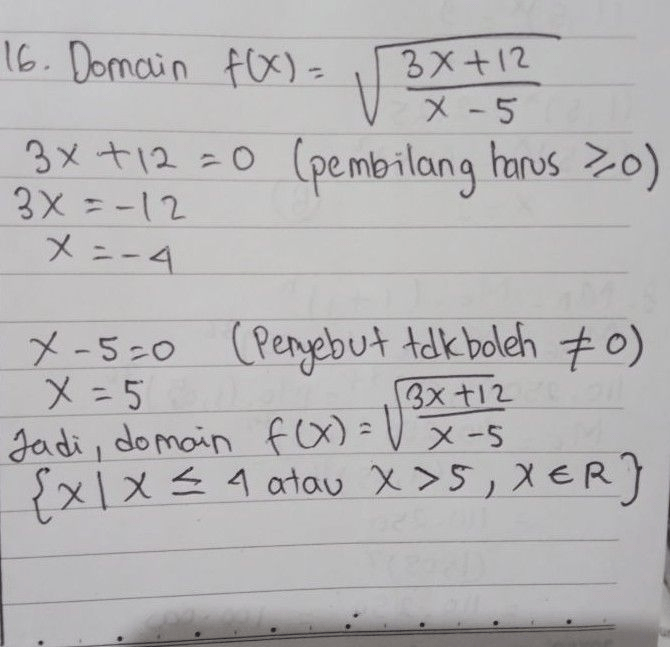 16. Domain f(x) = √((3x + 12)/(x - 5))
3x + 12 = 0 (pembilang harus ≥ 0)
3x = -12
x = -4
x - 5 = 0 (Penyebut tdk boleh ≠ 0)
x = 5
Jadi, domain f(x) = √((3x + 12)/(x - 5))
{x | x ≤ 4 atau x > 5, x ∈ R}